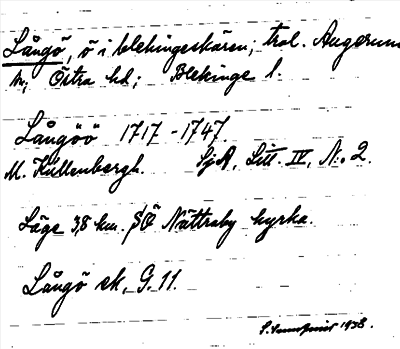 Långö, ö i blekingeskären; trol. Augerum
sn; Östra hd; Blekinge l.
Långöö 1717-1747.
M. Källenbergh. SjA, Litt. IV, N:o 2.
Läge 3,8 km. SÖ Nättraby kyrka.
Långö sk, G. 11.
1938.